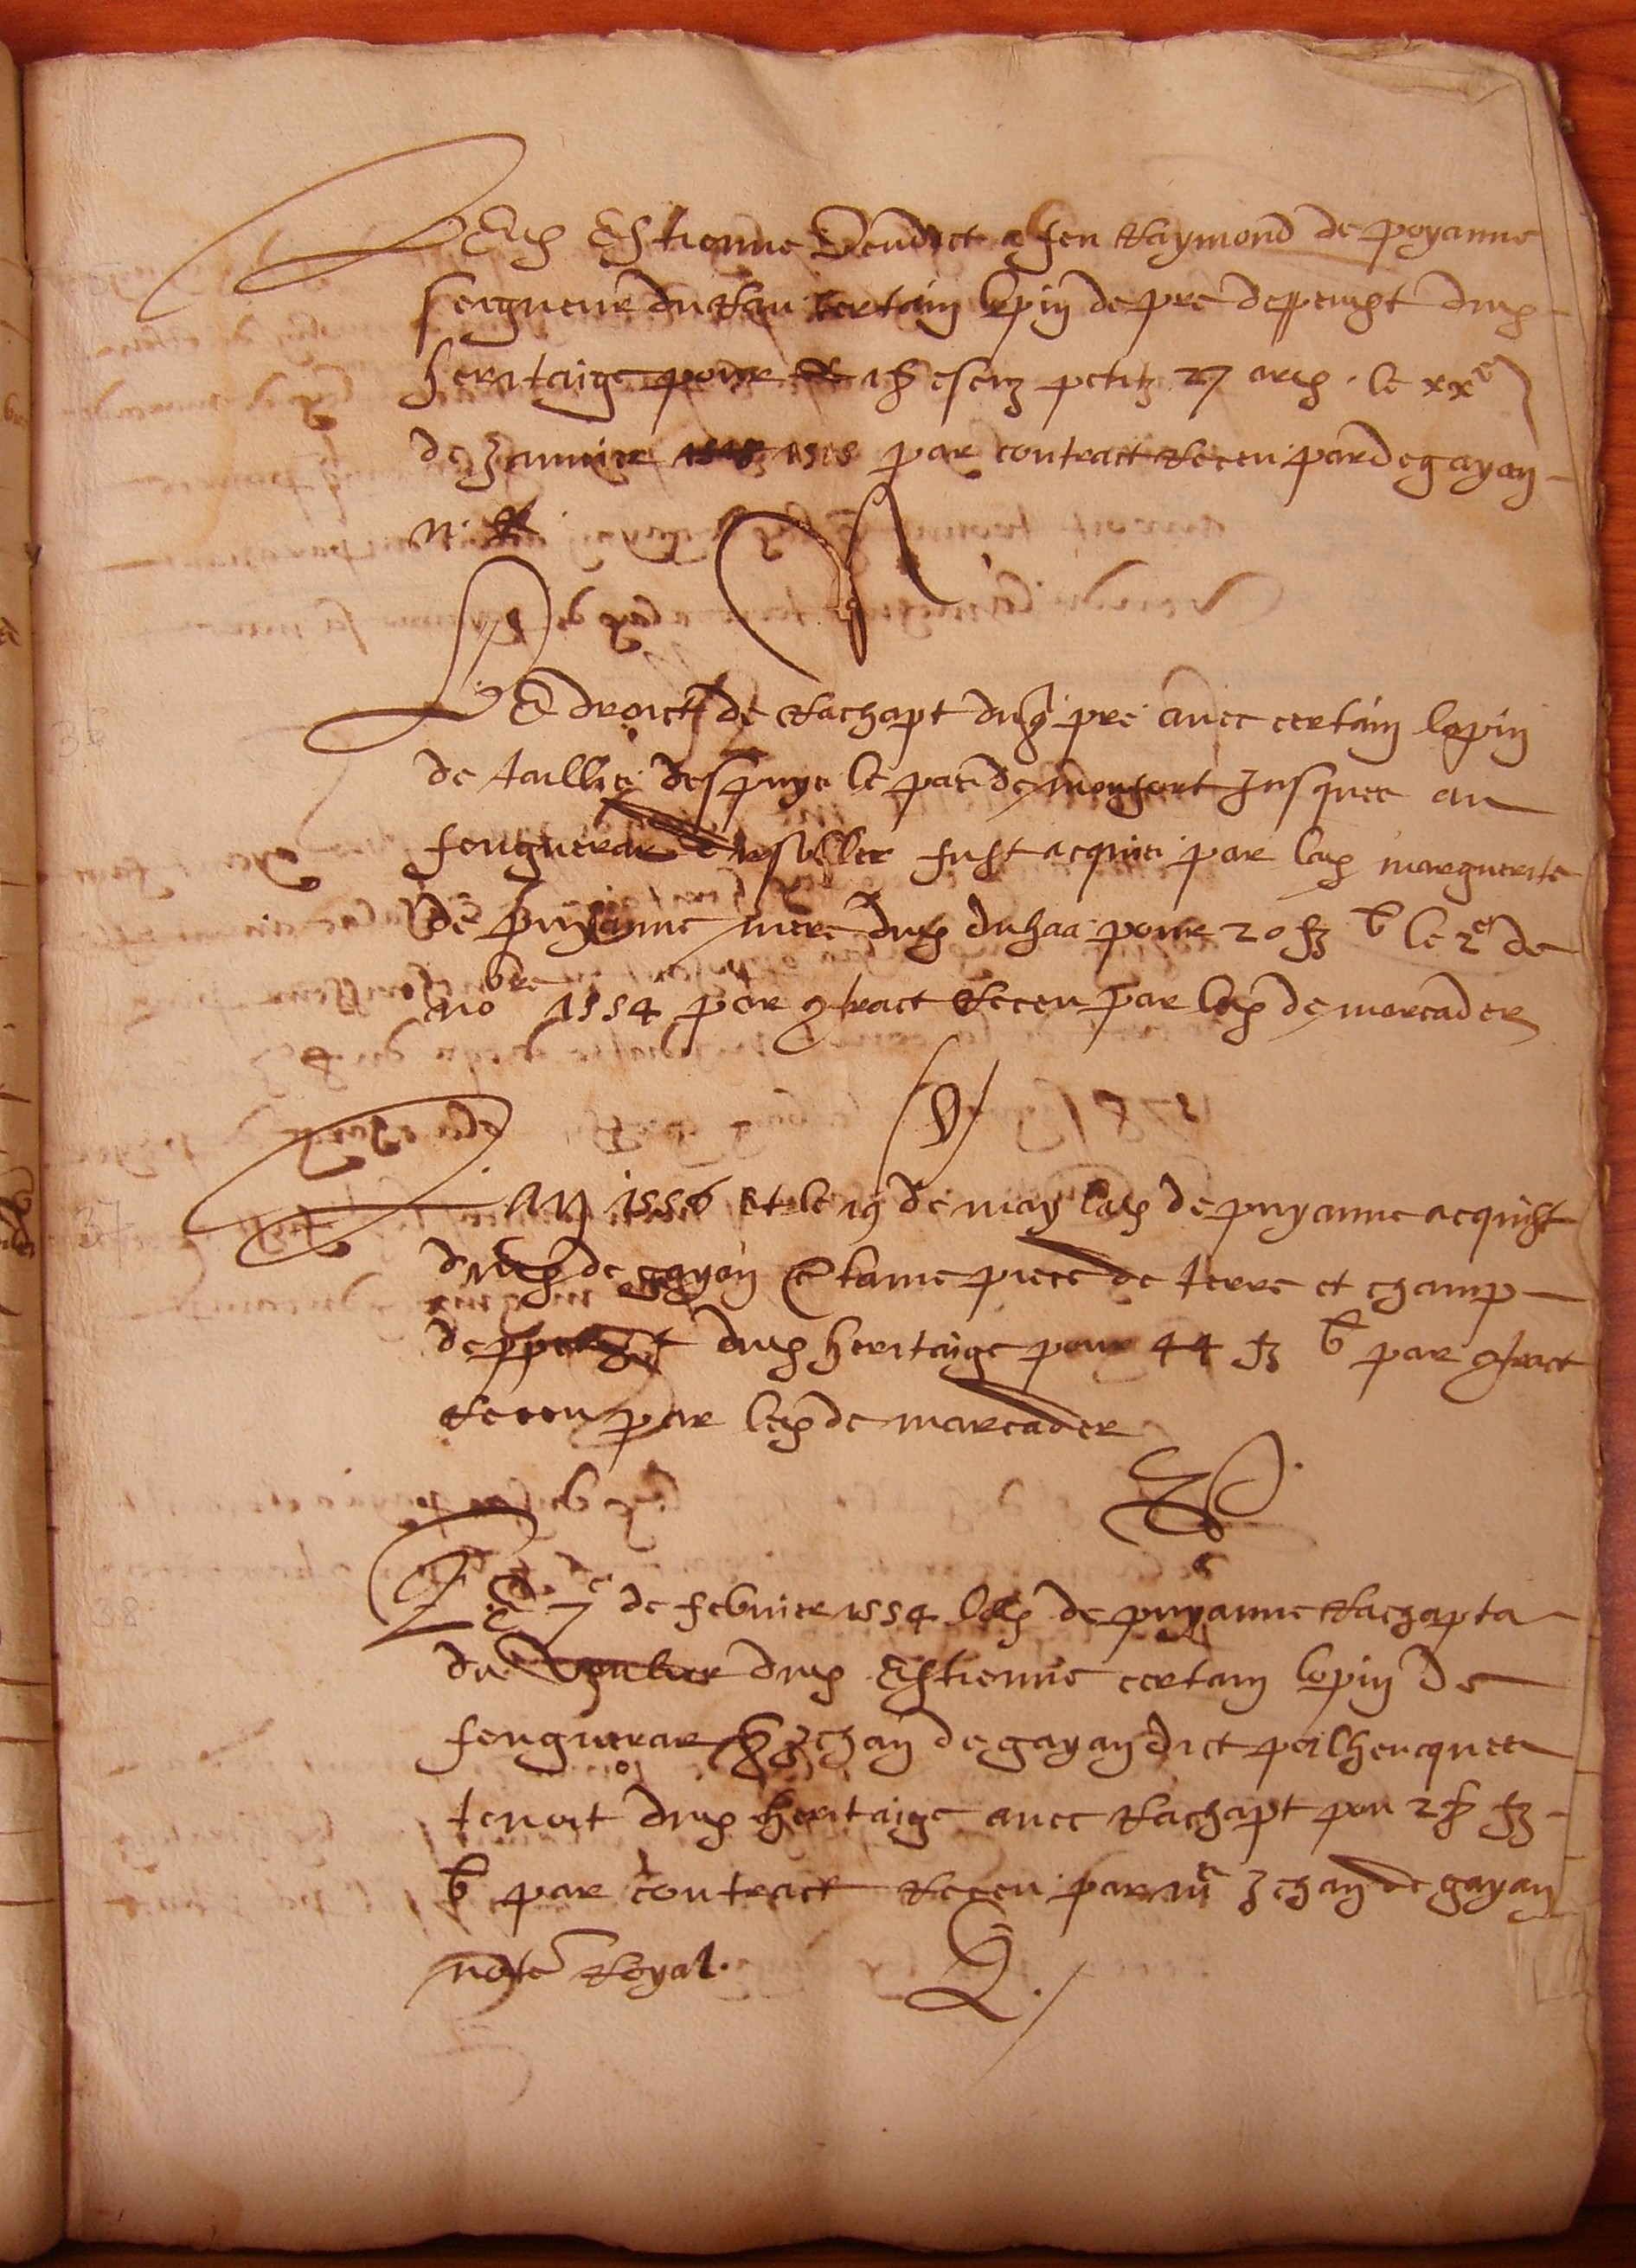 Led Estienne vendict a feu Raymond de poyanne
seigneur du Rau certain lopin de pre deppendt dud
heritaige pour 18 escuz petitz 27 ardz le xxe
de Janvier 1518 par contract Receu par de gayan
n. R
Le droict de Rachapt dud pre avec certain lopin
de taillis despuys le pas de montfort Jusques au
feuguerar fust acquis par lad marguerite
de puyanne mere dud duhaa pour 20 fz b le 2e de
nobre 1554 par contract Receu par led de marcader
Lan 1556 et le 19 de may lad de puyanne acquist
dud de gayan certaine piece de terre et champ
deppendt dud heritaige pour 44 fz b par contract
Receu par led de marcader
Le 7e de febvrier 1554 lad de puyanne Rachapta
du dud Estienne certain lopin de
feuguerar Jehan de gayan dict peilhencques
tenoit dud heritaige avec Rachapt pou 28 fz
b par contract Receu par me Jehan de gayan
note Royal.